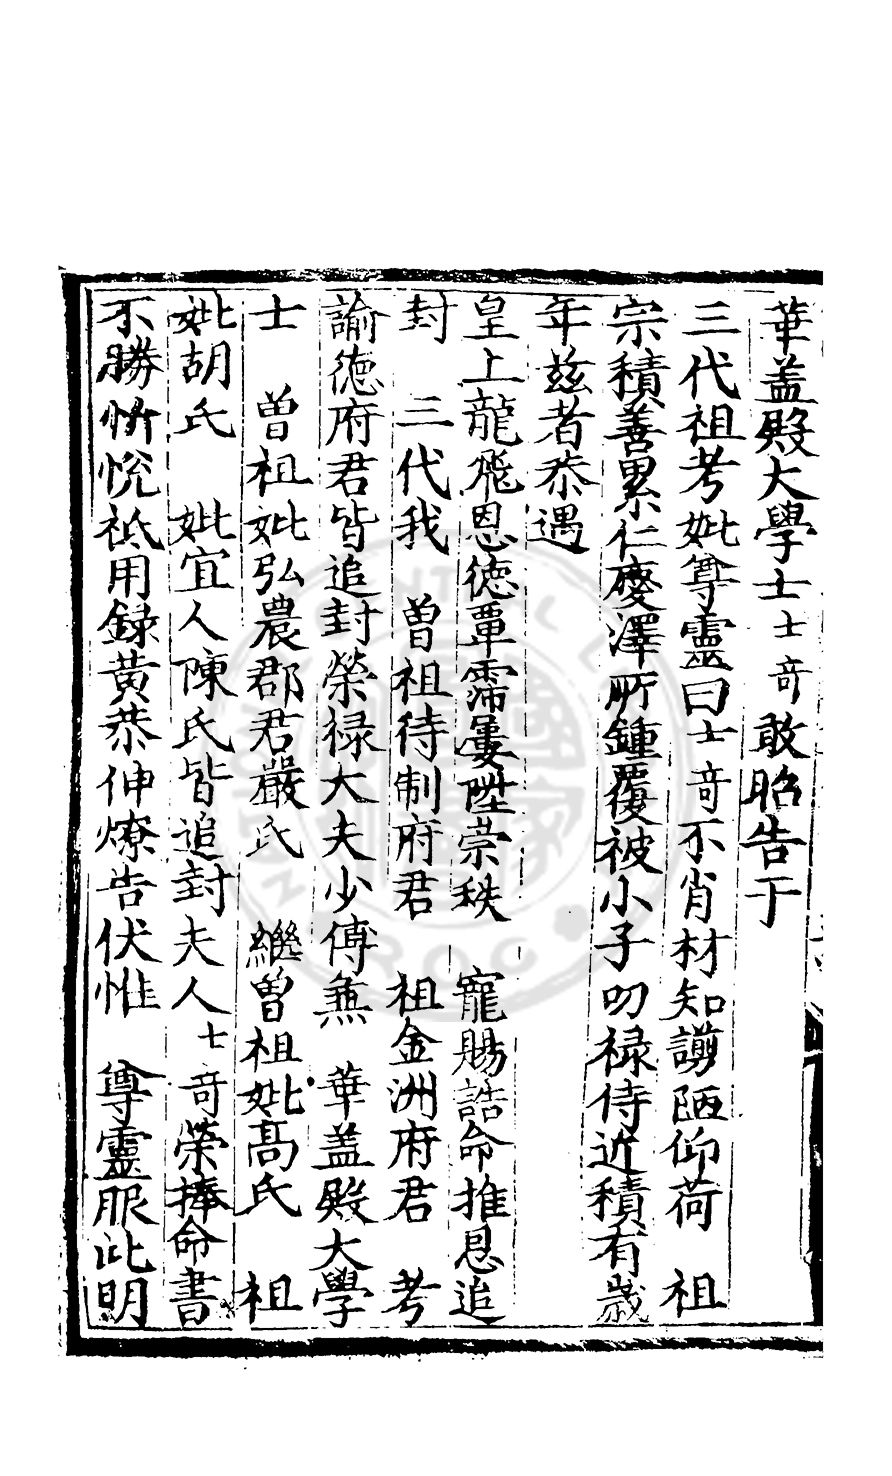 華盖殿大學士士奇敢昭告于
三代祖考妣尊靈曰士奇不肖材知譾陋仰荷　祖
宗積善累仁慶澤所鍾覆被小子叨禄侍近積有歲
年兹者恭遇
皇上龍飛恩德覃霈屢陞崇秩　寵賜誥命推恩追
封　三代我　曽祖待制府君　祖金洲府君　考
諭德府君皆追封榮禄大夫少傅兼　華盖殿大學
士　曽祖妣弘農郡君嚴氏　繼曽祖妣髙氏　祖
妣胡氏　妣宜人陳氏皆追封夫人士奇榮捧命書
不勝忻悅祗用録黄恭伸燎告伏惟　尊靈服此明